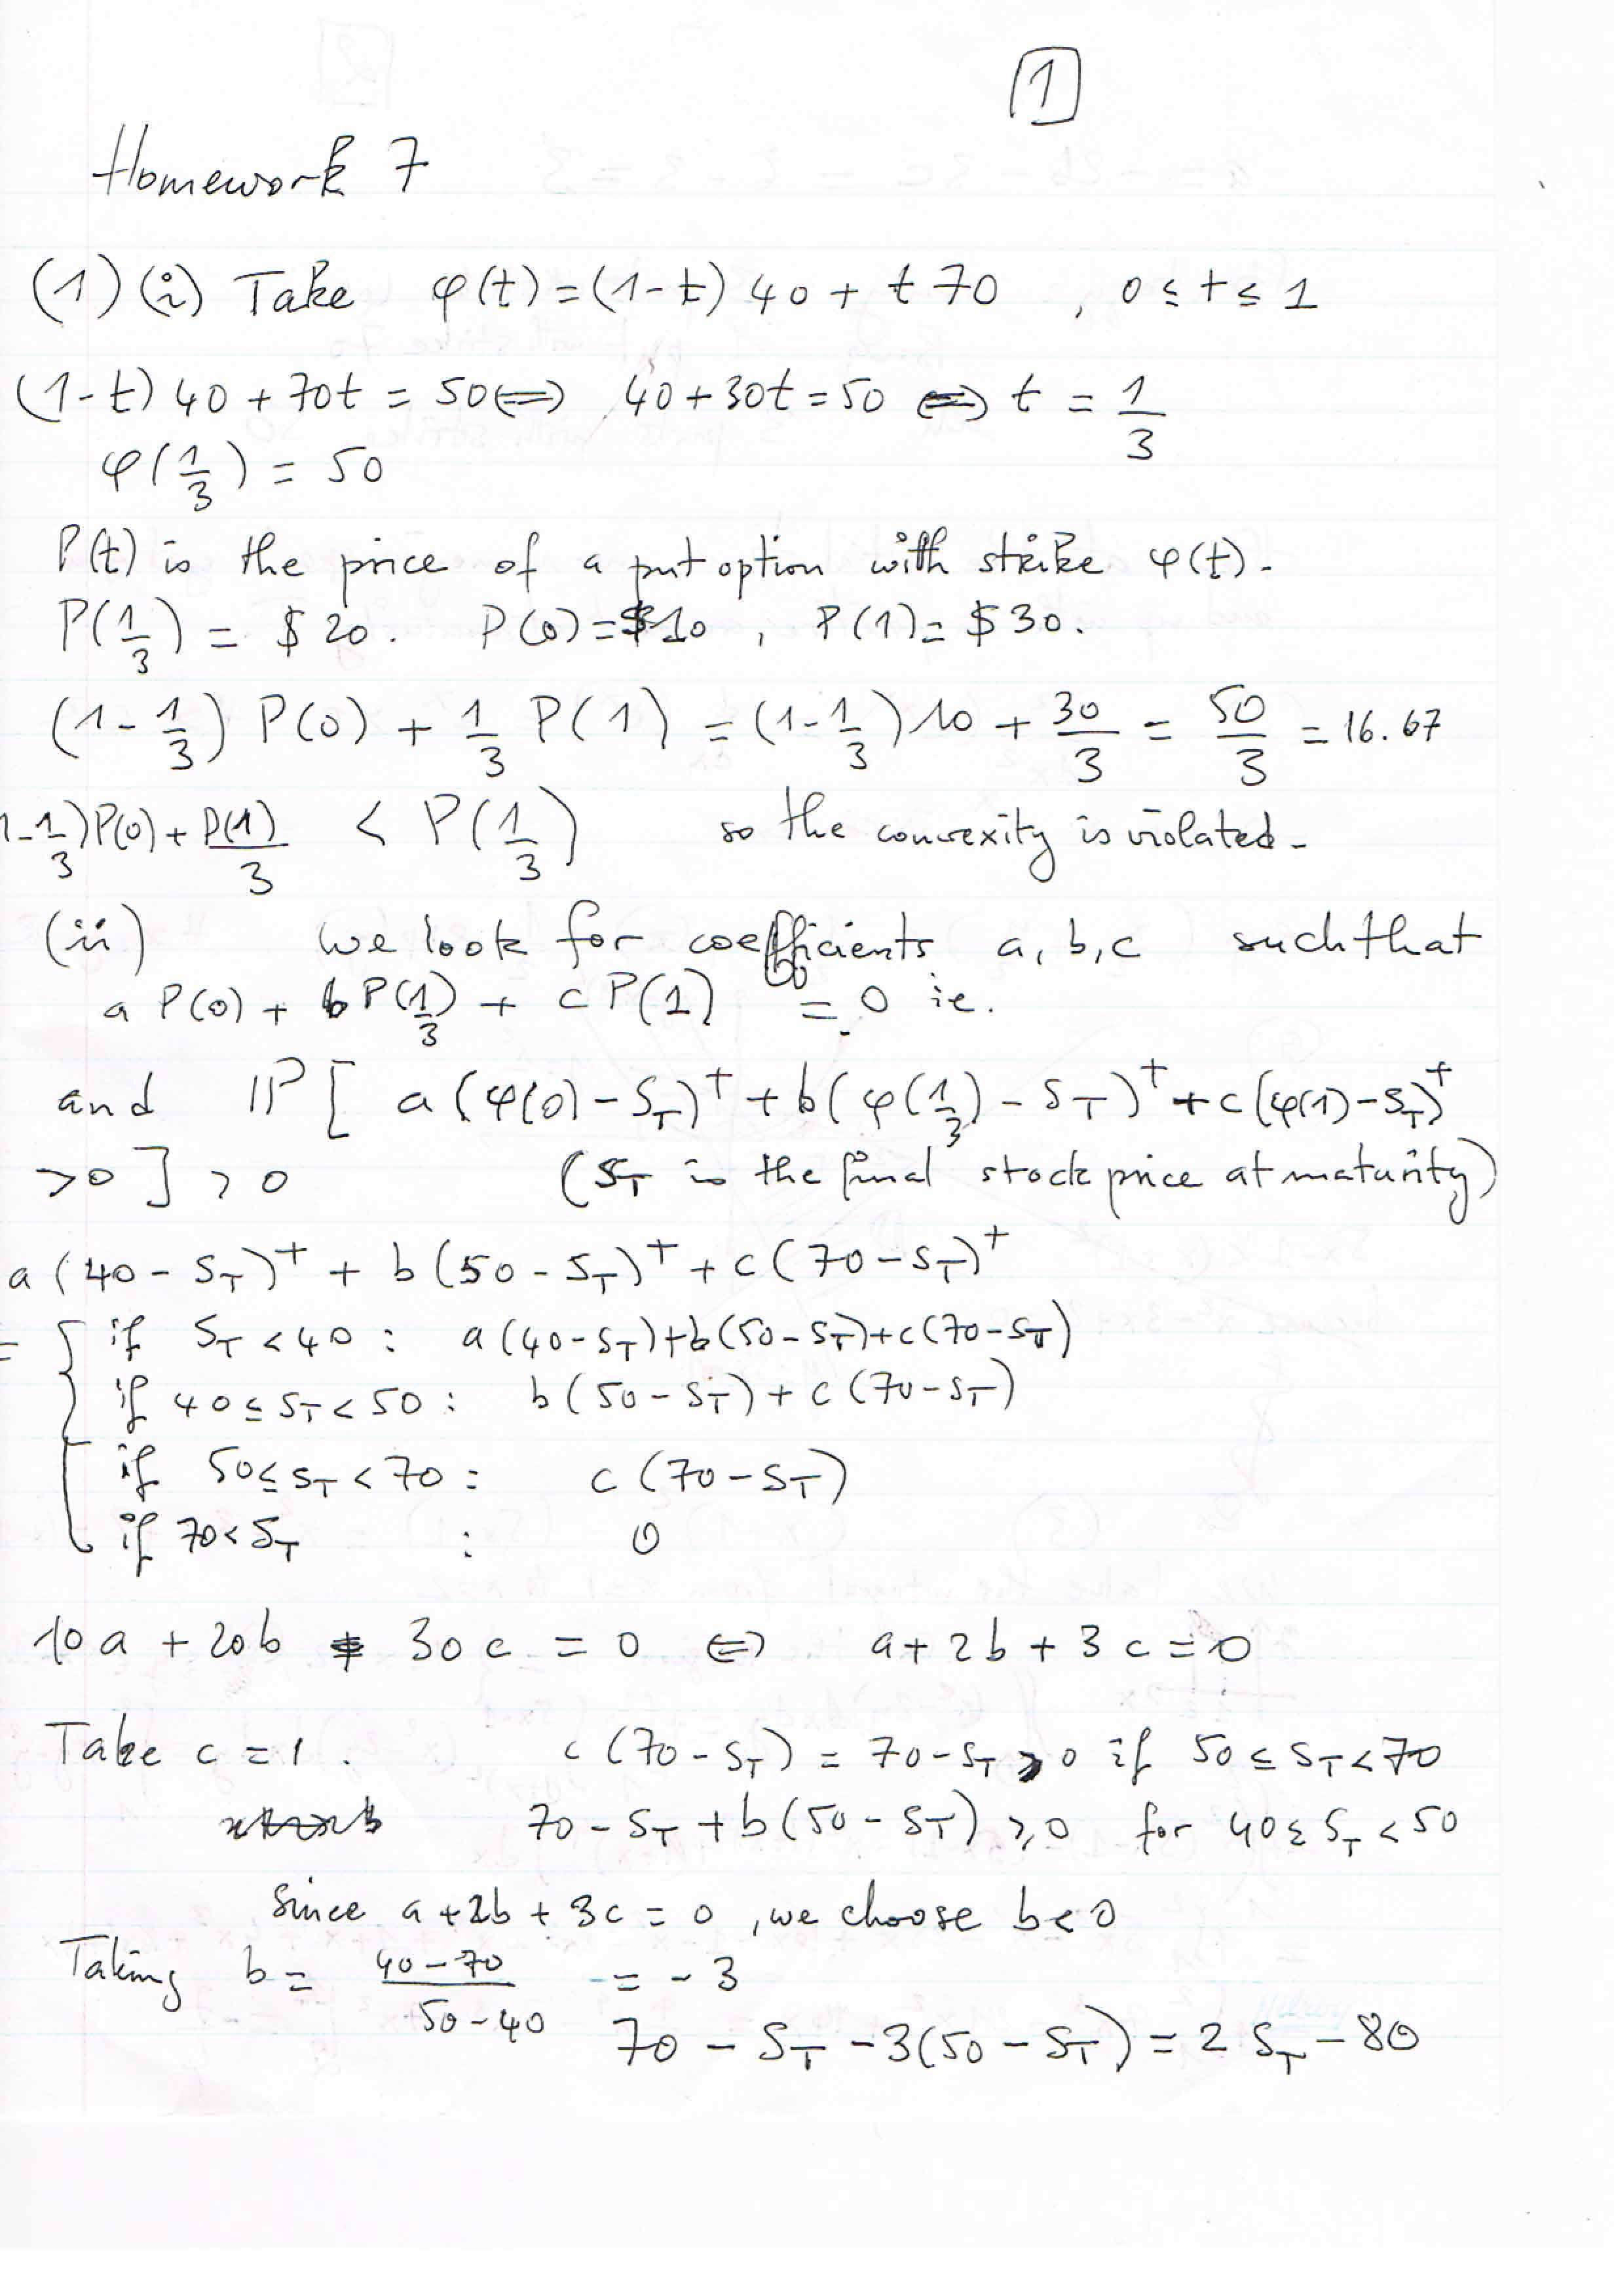 1
Homework 7
(1) (i) Take φ(t) = (1-t) 40 + t 70 , 0 ≤ t ≤ 1
(1-t) 40 + 70t = 50 ⇔ 40 + 30t = 50 ⇔ t = 1/3
φ(1/3) = 50
P(t) is the price of a put option with strike φ(t).
P(1/3) = $20. P(0) = $10 , P(1) = $30.
(1 - 1/3) P(0) + 1/3 P(1) = (1 - 1/3) 10 + 30/3 = 50/3 = 16.67
1 - 1/3) P(0) + P(1)/3 < P(1/3) so the convexity is violated.
(ii) we look for coefficients a, b, c such that
a P(0) + b P(1/3) + c P(1) = 0 ie.
and IP [ a (φ(0) - S_T)^+ + b (φ(1/3) - S_T)^+ + c (φ(1) - S_T)^+
> 0 ] > 0 (S_T is the final stock price at maturity)
a (40 - S_T)^+ + b (50 - S_T)^+ + c (70 - S_T)^+
= { if S_T < 40 : a (40 - S_T) + b (50 - S_T) + c (70 - S_T)
if 40 ≤ S_T < 50 : b (50 - S_T) + c (70 - S_T)
if 50 ≤ S_T < 70 : c (70 - S_T)
if 70 < S_T : 0
10 a + 20 b + 30 c = 0 ⇔ a + 2b + 3c = 0
Take c = 1 . c (70 - S_T) = 70 - S_T > 0 if 50 ≤ S_T < 70
70 - S_T + b (50 - S_T) ≥ 0 for 40 ≤ S_T < 50
Since a + 2b + 3c = 0 , we choose b < 0
Taking b = (40 - 70)/(50 - 40) = - 3
70 - S_T - 3 (50 - S_T) = 2 S_T - 80